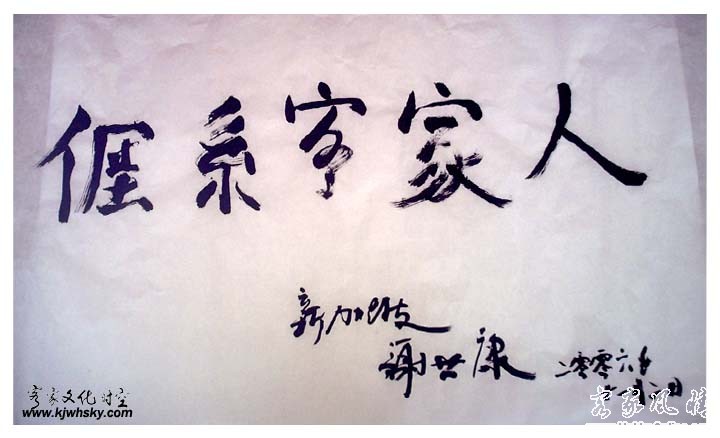 𠊎系客家人
新加坡
谢世康
二零零六年
客家文化时空
www.kjwhsky.com
客家风情